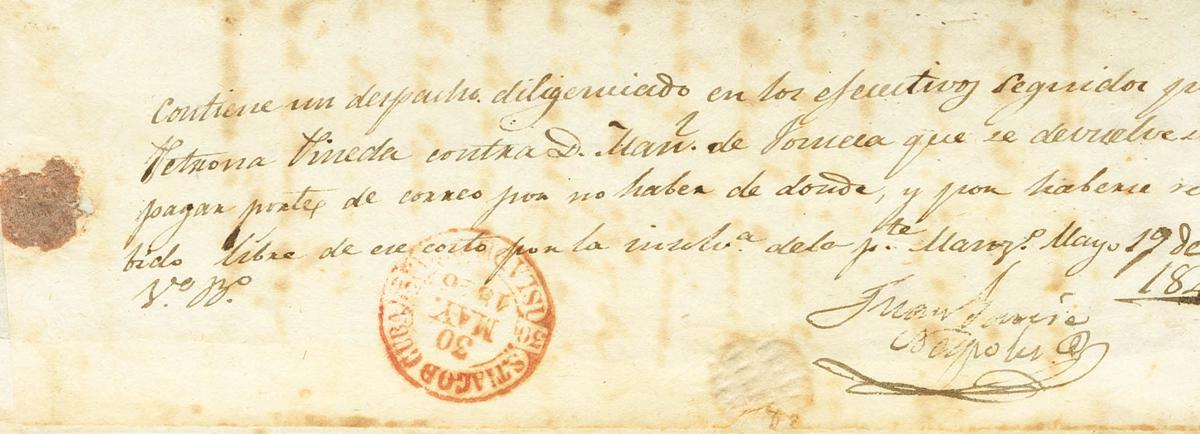 Contiene un despacho diligenciado en los ejecutivos seguidos p
Petrona Pineda contra D. Man.l de Fonseca que se devuelve
pagar portes de correo por no haber de donde, y por haberse re
bido libre de ese costo por la insolv.a dela p.te Manz.o Mayo 19 de
184
V.o B.o
Juan
30
MAY.
S.TIAGO D CUBA